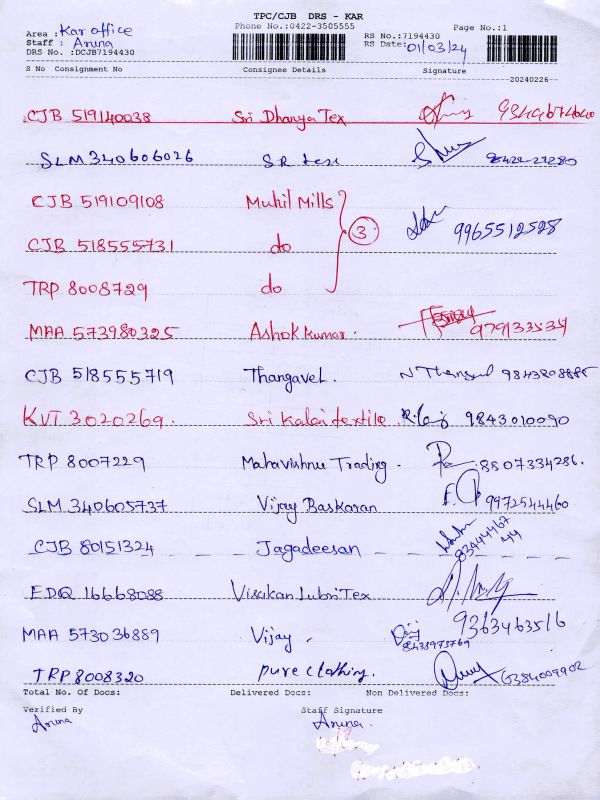 TPC/CJB DRS - KAR
Phone No.:0422-3505555 Page No.:1
Area : Kar office RS No.:7194430
Staff : Aruna RS Date: 01/03/24
DRS No. :DCJB7194430
S No Consignment No Consignee Details Signature
20240226
CJB 519140038 Sri Dhanya Tex
SLM 340606026 S R tex
CJB 519109108 Muhil Mills
CJB 518555731 do 3 9965512528
TRP 8008729 do
MAA 573980325 Ashok kumar.
CJB 518555719 Thangavel.
KVT 3020269. Sri Kalai textile 9843010090
TRP 8007229 Mahavishnu Trading. 8807334286.
SLM 340605737 Vijay Baskaran 9972544460
CJB 80151324 Jagadeesan 8344446744
EDQ 16668088 Visakan Lubri Tex
9363463516
MAA 573036889 Vijay,
TRP 8008320 pure clothing. 6384009902
Total No. Of Docs: Delivered Docs: Non Delivered Docs:
Verified By Staff Signature
Aruna Aruna.